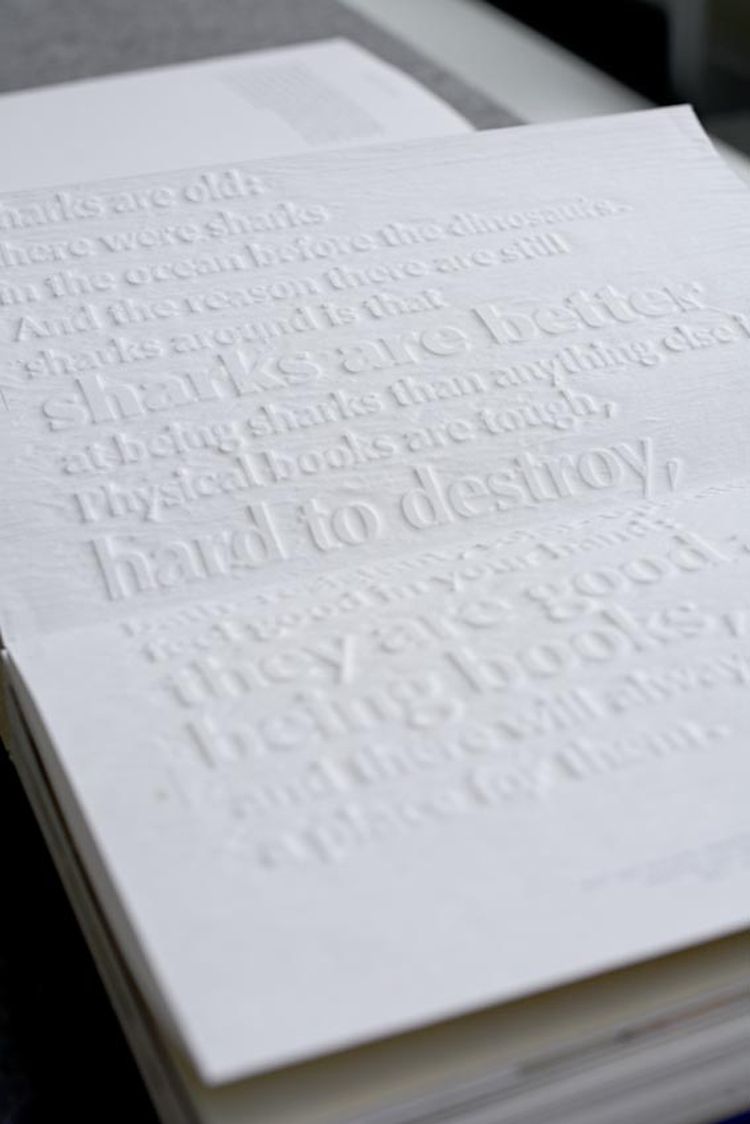 harks are old:
here were sharks
in the ocean before the dinosaurs.
And the reason there are still
sharks around is that
sharks are better
at being sharks than anything else
Physical books are tough,
hard to destroy,
feel good in your hand:
they are good
being books,
and there will always
a place for them.